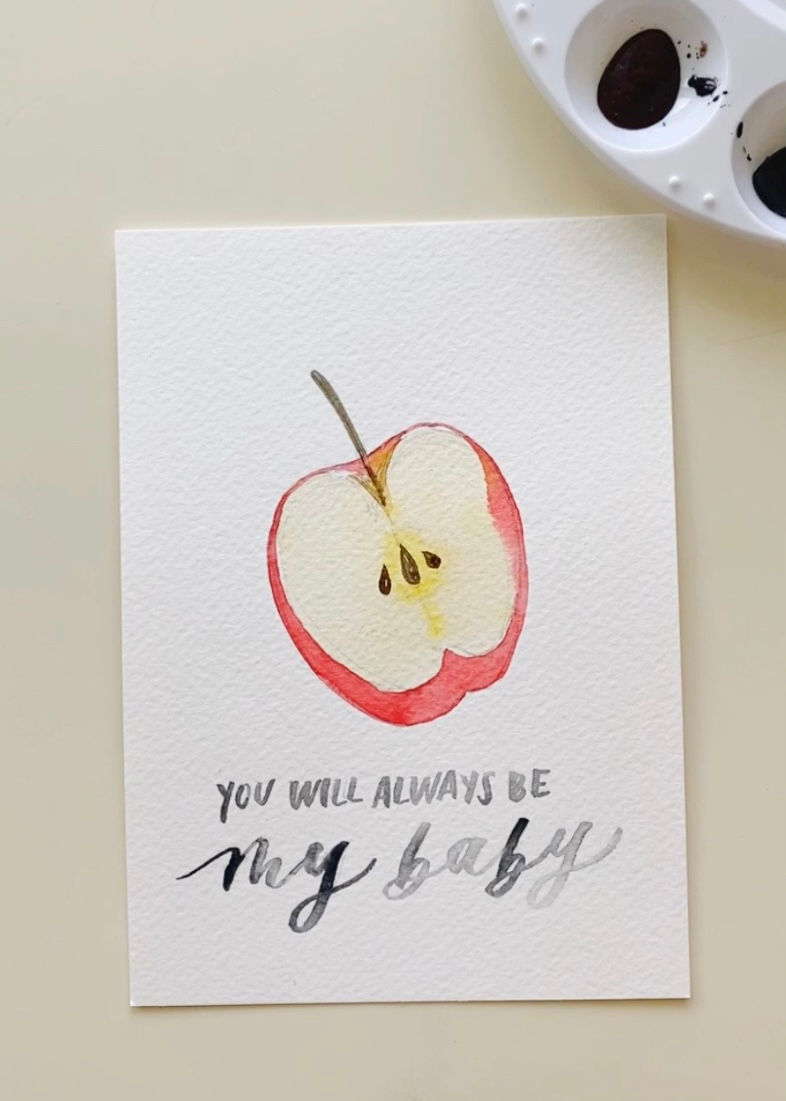 YOU WILL ALWAYS BE
my baby